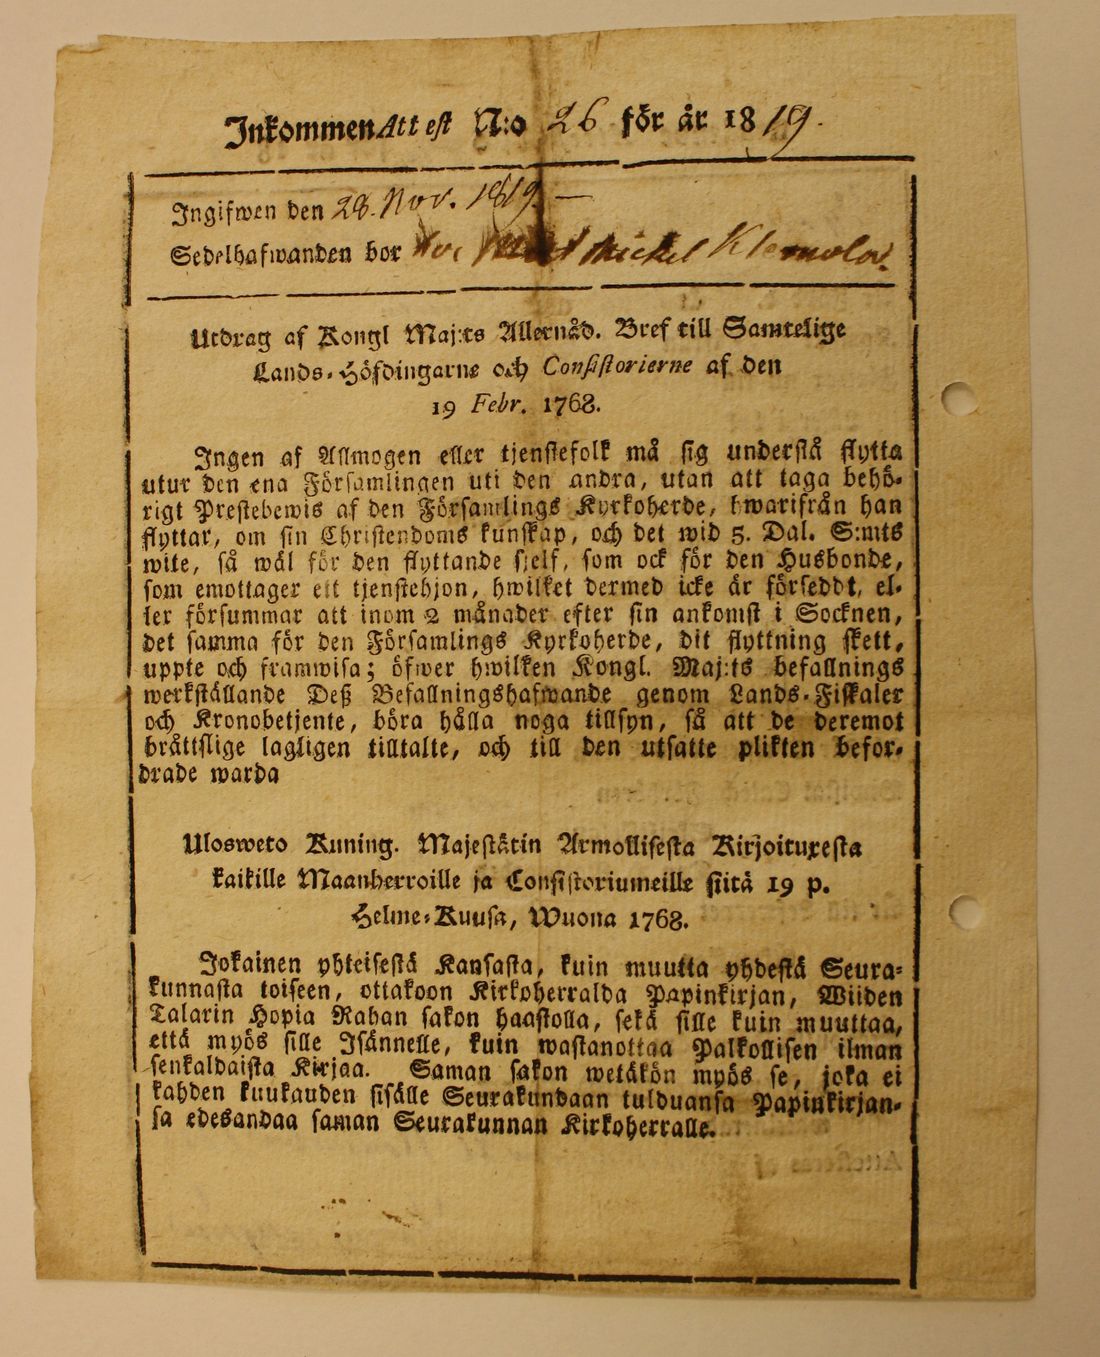 Inkommen Attest N:o 26 för år 1819.
Ingifwen den 28. Nov. 1819. —
Sedelhafwanden bor hos Michel Klemola.
Utdrag af Kongl Maj:ts Allernåd. Bref till Samtelige
Lands-Höfdingarne och Consistorierne af den
19 Febr. 1768.
Ingen af Allmogen eller tjenstefolk må sig understå flytta
utur den ena Församlingen uti den andra, utan att taga behö-
rigt Prestebewis af den Församlings Kyrkoherde, hwarifrån han
flyttar, om sin Christendoms kunskap, och det wid 5. Dal. S:mts
wite, så wäl för den flyttande sjelf, som ock för den Husbonde,
som emottager ett tjenstehjon, hwilket dermed icke är förseddt, el-
ler försummar att inom 2 månader efter sin ankomst i Socknen,
det samma för den Församlings Kyrkoherde, dit flyttning skett,
uppte och framwisa; öfwer hwilken Kongl. Maj:ts befallnings
werkställande Deß Befallningshafwande genom Lands-Fiskaler
och Kronobetjente, böra hålla noga tillsyn, så att de deremot
bråttslige lagligen tilltalte, och till den utsatte plikten befor-
drade warda
Ulosweto Kuning. Majestätin Armollisesta Kirjoituxesta
kaikille Maanherroille ja Consistoriumeille siitä 19 p.
Helme-Kuusa, Wuona 1768.
Jokainen yhteisestä Kansasta, kuin muutta yhdestä Seura-
kunnasta toiseen, ottakoon Kirkoherralda Papinkirjan, Wiiden
Talarin Hopia Rahan sakon haastolla, sekä sille kuin muuttaa,
että myös sille Isännelle, kuin wastanottaa Palkollisen ilman
senkaldaista Kirjaa. Saman sakon wetäkön myös se, joka ei
kahden kuukauden sisälle Seurakundaan tulduansa Papinkirjan-
sa edesandaa saman Seurakunnan Kirkoherralle.